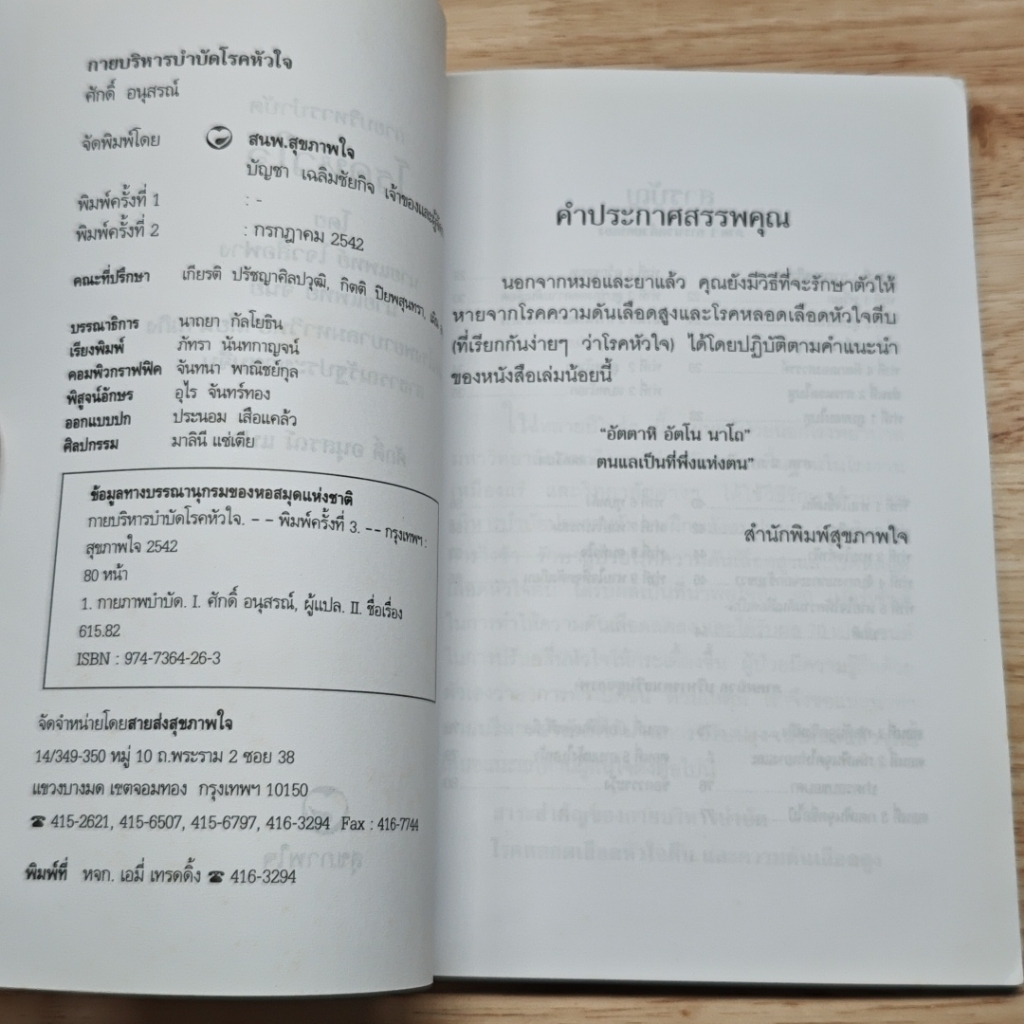 กายบริหารบำบัดโรคหัวใจ
ศักดิ์ อนุสรณ์
จัดพิมพ์โดย สนพ.สุขภาพใจ
บัญชา เฉลิมชัยกิจ เจ้าของและผู้
พิมพ์ครั้งที่ 1 : -
พิมพ์ครั้งที่ 2 : กรกฎาคม 2542
คณะที่ปรึกษา เกียรติ ปรัชญาศิลปวุฒิ, กิตติ ปิยพสุนทรา,
บรรณาธิการ นาถยา กัลโยธิน
เรียงพิมพ์ ภัทรา นันทกาญจน์
คอมพิวกราฟฟิค จันทนา พาณิชย์กุล
พิสูจน์อักษร อุไร จันทร์ทอง
ออกแบบปก ประนอม เสือแคล้ว
ศิลปกรรม มาลินี แซ่เตีย
ข้อมูลทางบรรณานุกรมของหอสมุดแห่งชาติ
กายบริหารบำบัดโรคหัวใจ. -- พิมพ์ครั้งที่ 3. -- กรุงเทพฯ :
สุขภาพใจ 2542
80 หน้า
1. กายภาพบำบัด. I. ศักดิ์ อนุสรณ์, ผู้แปล. II. ชื่อเรื่อง
615.82
ISBN : 974-7364-26-3
จัดจำหน่ายโดยสายส่งสุขภาพใจ
14/349-350 หมู่ 10 ถ.พระราม 2 ซอย 38
แขวงบางมด เขตจอมทอง กรุงเทพฯ 10150
☎ 415-2621, 415-6507, 415-6797, 416-3294 Fax : 416-7744
พิมพ์ที่ หจก. เอมี่ เทรดดิ้ง ☎ 416-3294
คำประกาศสรรพคุณ
นอกจากหมอและยาแล้ว คุณยังมีวิธีที่จะรักษาตัวให้
หายจากโรคความดันเลือดสูงและโรคหลอดเลือดหัวใจตีบ
(ที่เรียกกันง่ายๆ ว่าโรคหัวใจ) ได้โดยปฏิบัติตามคำแนะนำ
ของหนังสือเล่มน้อยนี้
"อัตตาหิ อัตโน นาโถ"
ตนแลเป็นที่พึ่งแห่งตน"
สำนักพิมพ์สุขภาพใจ